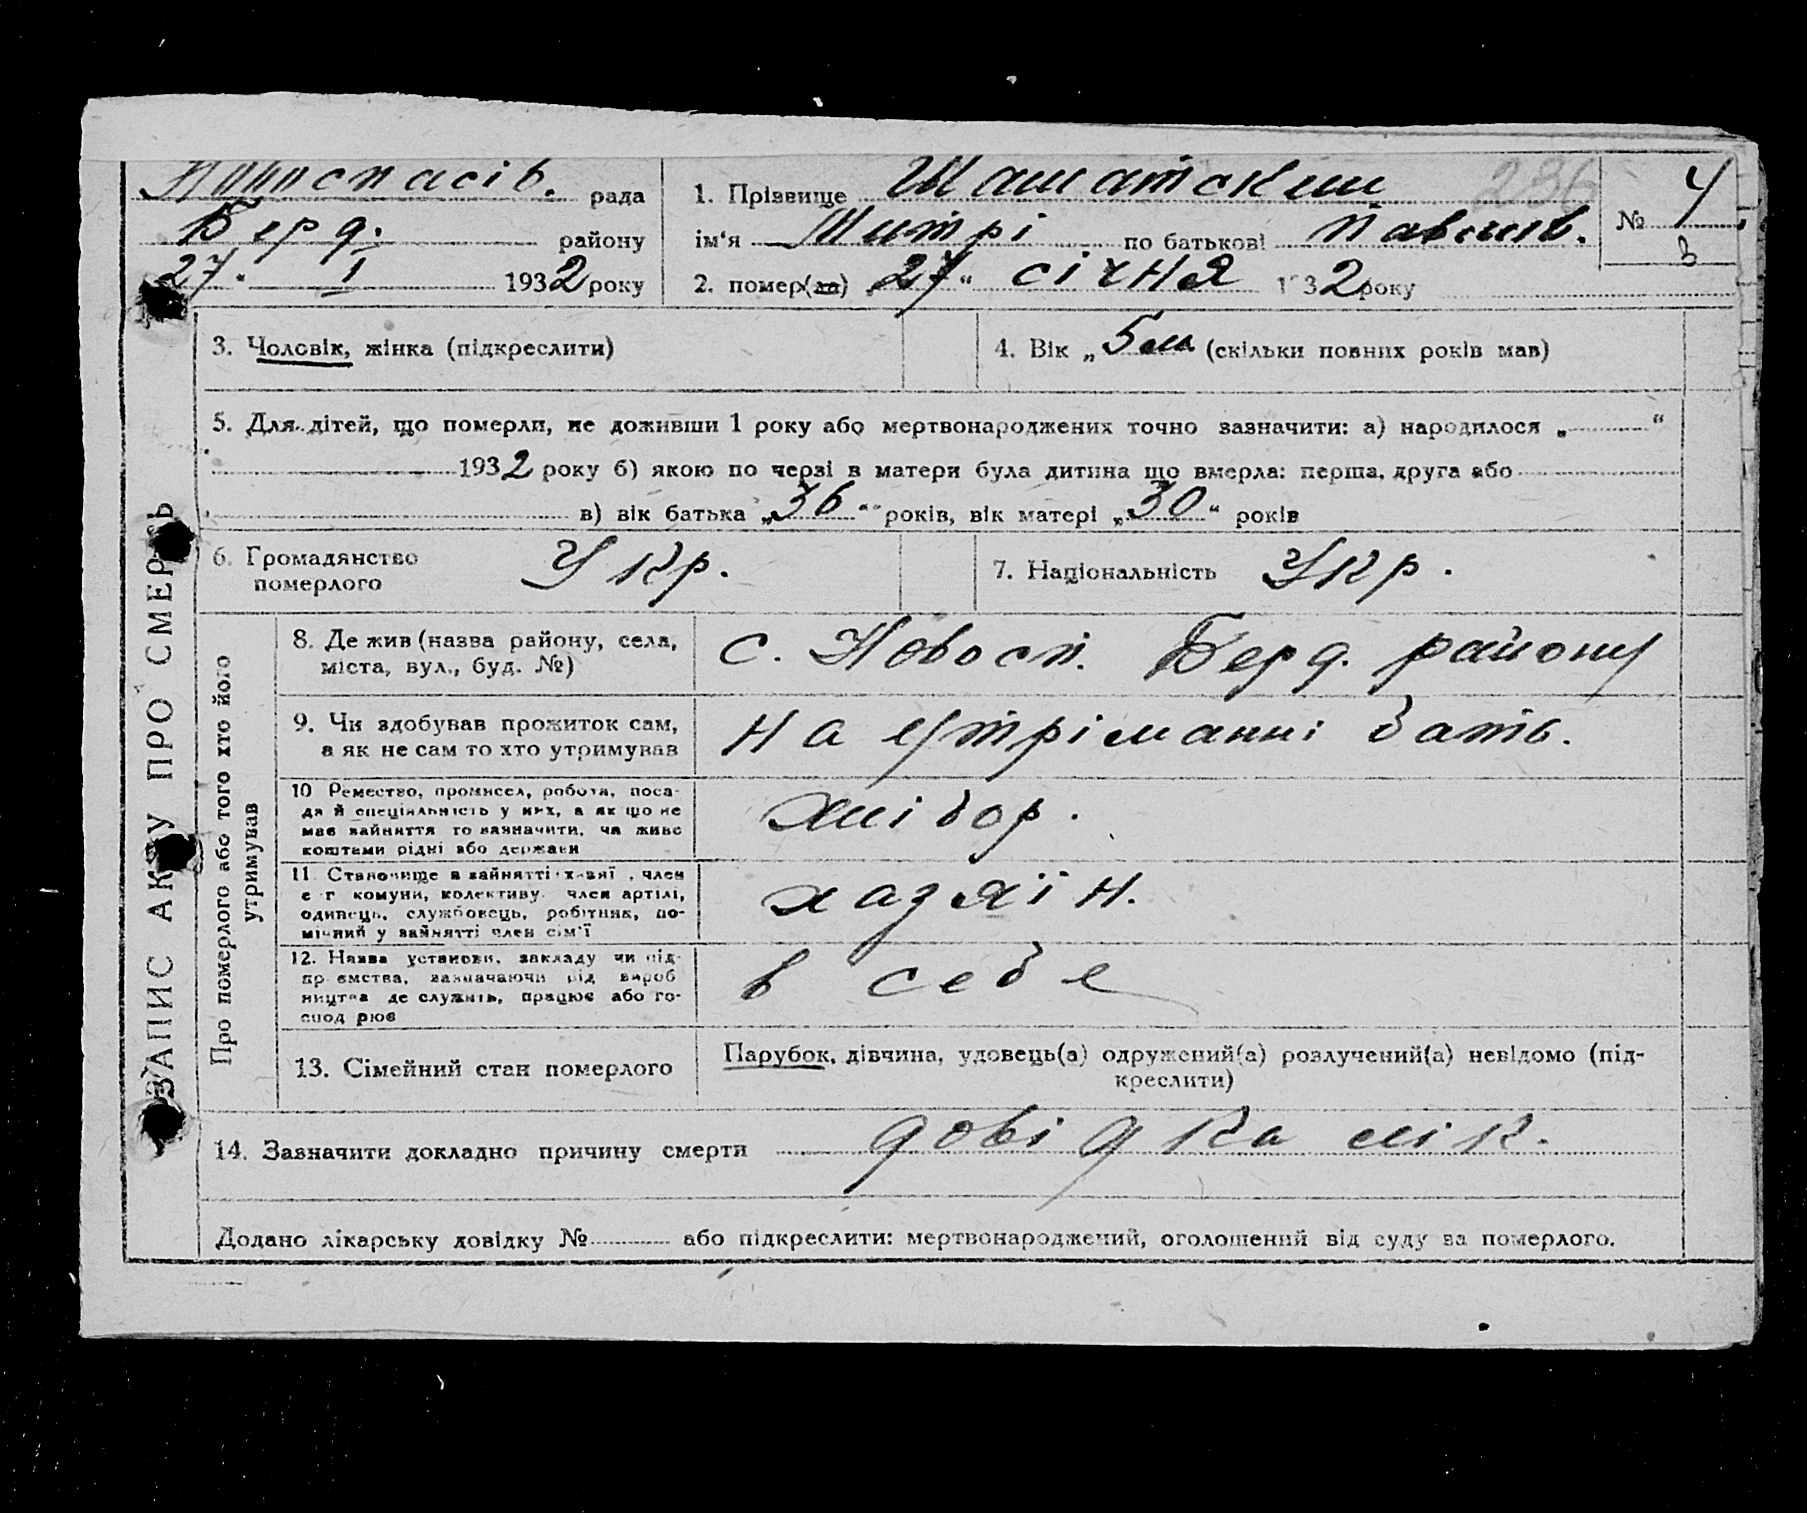 Новоспасів. рада
Берд. району
27. I 1932 року
1. Прізвище
236
ім‘я Митрі по батькові Павлів.
№ 4
2. помер(ла) „27“ січня 1932 року
3. Чоловік, жінка (підкреслити)
4. Вік „5 м (скільки повних років мав)
5. Для дітей, що померли, не доживши 1 року або мертвонароджених точно зазначити: а) народилося „ “
1932 року б) якою по черзі в матери була дитина що вмерла: перша, друга або
в) вік батька „36“ років, вік матері „30“ років
6. Громадянство
померлого Укр.
7. Національність Укр.
ЗАПИС АКТУ ПРО СМЕРТЬ
Про померлого або того хто його
утримував
8. Де жив (назва району, села,
міста, вул., буд. №)
с. Новосп. Берд. району
9. Чи здобував прожиток сам,
а як не сам то хто утримував
на утріманні бать.
10 Ремество, промисел, робота, поса-
да й спеціяльність у них, а як що не
має зайняття то зазначити, чи живе
коштами рідні або держави
хлібор.
11. Становище в зайнятті член
комуни, колективу член артілі,
одинець, службовець, робітник, по-
мічний у зайнятті член сім‘ї
хазяїн.
12. Назва установи, закладу чи під-
приємства, зазначаючи рід вироб
ництва де служить, працює або го-
сподарює
в себе
13. Сімейний стан померлого
Парубок, дівчина, удовець(а) одружений(а) розлучений(а) невідомо (під-
креслити)
14. Зазначити докладно причину смерти довідка лік.
Додано лікарську довідку № або підкреслити: мертвонароджений, оголошений від суду за померлого.